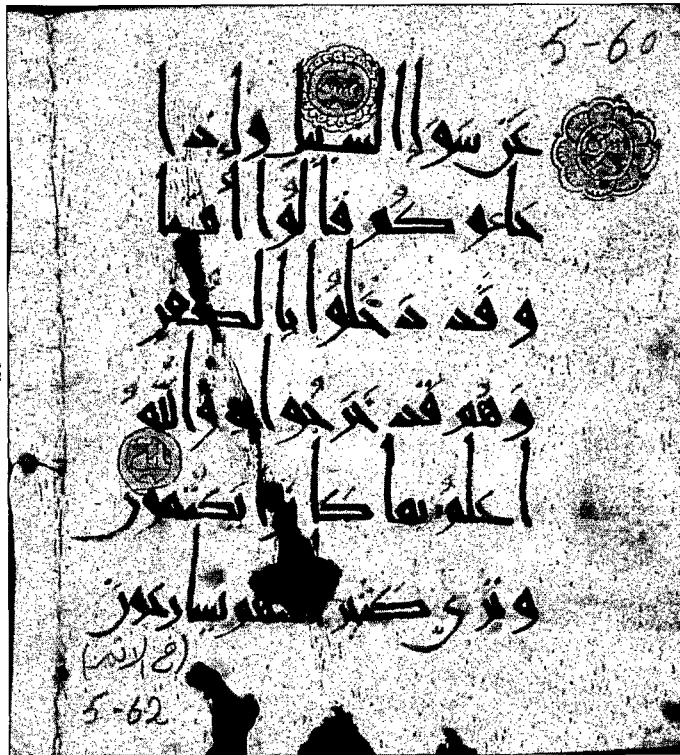 5-60
عَن سَوَاءِ السبيل وإذا
جَاءوكُم قَالُوا أمنا
وقَد دَخَلُوا بِالكفرِ
وَهُم قَد خَرَجُوا بِهِ وَاللهُ
اعلَمُ بما كَانُوا يَكتمون
وتَرَى كَثِيرا منهم يسارعونَ
(في الاثم)
5-62